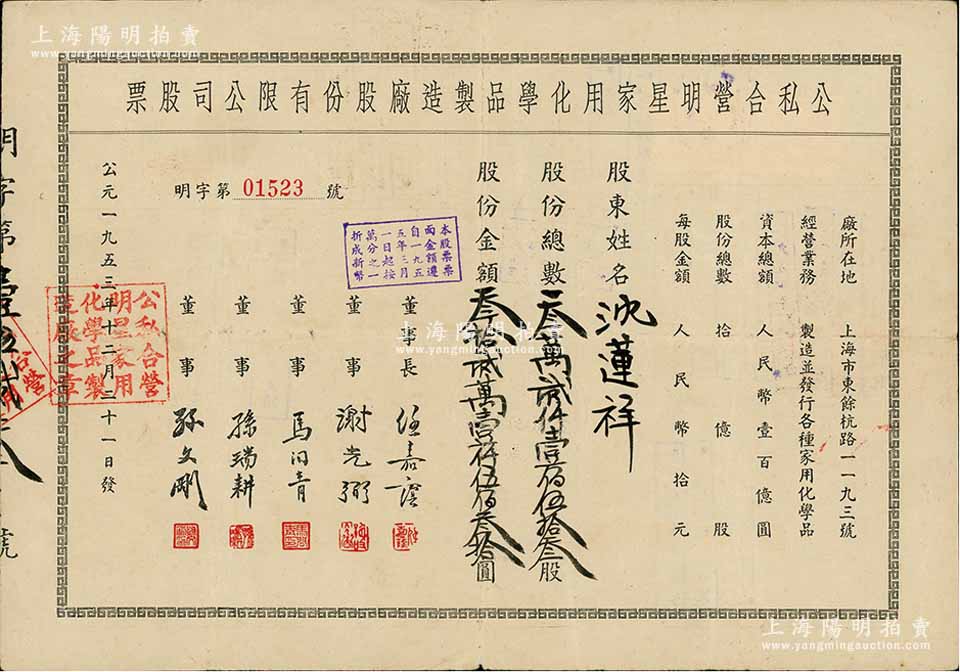 上海陽明拍賣
www.yangmingauction.com
公私合營明星家用化學品製造廠股份有限公司股票
廠所在地 上海市東餘杭路一一九三號
經營業務 製造並發行各種家用化學品
資本總額 人民幣壹百億圓
股份總數 拾億股
每股金額 人民幣拾元
股東姓名 沈蓮祥
股份總數 叁萬貳仟壹佰伍拾叁股
股份金額 叁拾貳萬壹仟伍佰叁拾圓
明字第 01523 號
本股票票
面金額遵
自一九五
五年三月
一日起按
萬分之一
折成新幣
董事長 任嘉
董事 謝光弼
董事 馬青
董事 孫瑞耕
董事 孫文
公元一九五三年十二月三十一日發
公私合營
明星家用
化學品製
造廠之章
明字第壹伍貳叁號
上海陽明拍賣
www.yangmingauction.com
上海陽明拍賣
www.yangmingauction.com